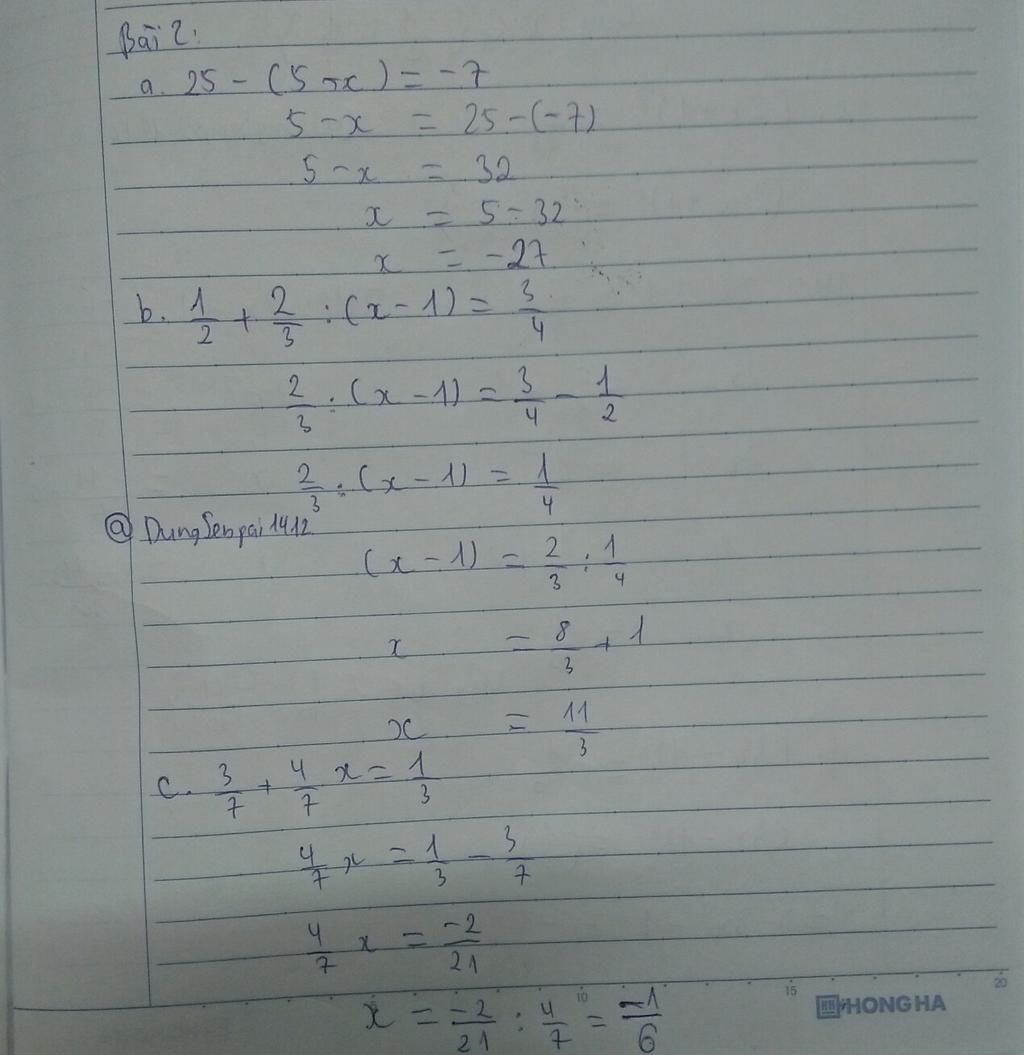 Bài 2:
a. 25 - (5 - x) = -7
5 - x = 25 - (-7)
5 - x = 32
x = 5 - 32
x = -27
b. 1/2 + 2/3 : (x - 1) = 3/4
2/3 : (x - 1) = 3/4 - 1/2
2/3 : (x - 1) = 1/4
@ DungSenpai1412
(x - 1) = 2/3 : 1/4
x = 8/3 + 1
x = 11/3
c. 3/7 + 4/7 x = 1/3
4/7 x = 1/3 - 3/7
4/7 x = -2/21
x = -2/21 : 4/7 = -1/6
10 15 20
HH HONG HA